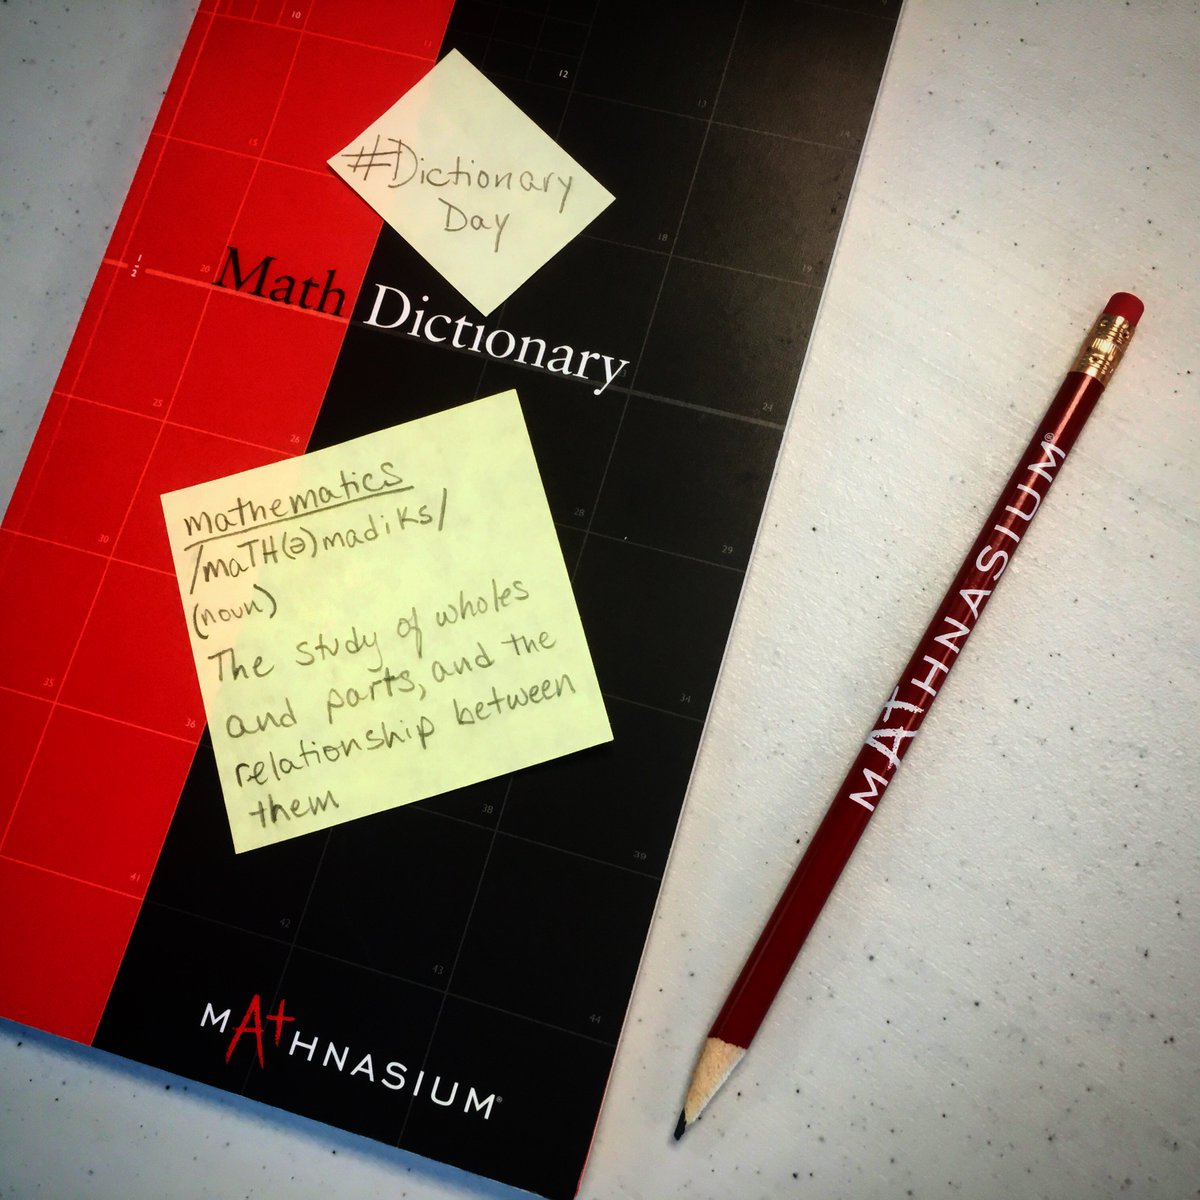 #Dictionary
Day
Math Dictionary
mathematics
/maTH(ə)madiks/
(noun)
The study of wholes
and parts, and the
relationship between
them
MATHNASIUM®
MATHNASIUM®
10
11
12
13
14
15
18
19
1/2
20
24
25
26
28
29
30
34
35
36
38
39
41
42
43
44